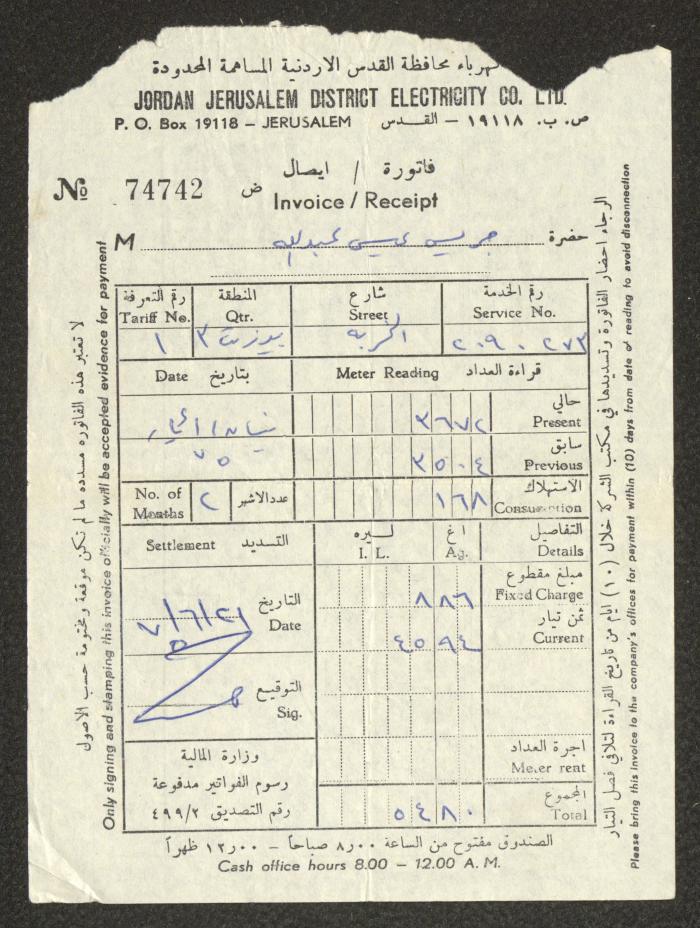 كهرباء محافظة القدس الاردنية المساهمة المحدودة
JORDAN JERUSALEM DISTRICT ELECTRICITY CO. LTD.
P. O. Box 19118 – JERUSALEM ص. ب. ١٩١١٨ – القدس
فاتورة / ايصال
№ 74742 ض
Invoice / Receipt
M جريس عيسى عبدالله حضرة
رقم التعرفة المنطقة شارع رقم الخدمة
Tariff No. Qtr. Street Service No.
١ بيرزيت ٣ الخربه ٢٠٩٠٢٧٣
Date بتاريخ Meter Reading قراءة العداد
نيسان / ايار ٣٦٧٢ حالي
Present
٧٥ ٣٥٠٤ سابق
Previous
No. of Months ٢ عدد الاشهر ١٦٨ الاستهلاك
Consumption
Settlement التسديد ليره اغ التفاصيل
I. L. Ag. Details
مبلغ مقطوع
التاريخ ٨٨٦ Fixed Charge
٢١/٦/٧٥ Date ثمن تيار
٤٥٩٤ Current
التوقيع
Sig.
وزارة المالية اجرة العداد
رسوم الفواتير مدفوعة Meter rent
رقم التصديق ٤٩٩/٢ ٥٤٨٠ المجموع
Total
الصندوق مفتوح من الساعة ٨٫٠٠ صباحاً – ١٢٫٠٠ ظهراً
Cash office hours 8.00 – 12.00 A. M.
لا تعتبر هذه الفاتوره مسدده ما لم تكن موقعة ومختومة حسب الاصول
Only signing and stamping this invoice officially will be accepted evidence for payment
الرجاء احضار الفاتورة وتسديدها في مكتب الشركة خلال (١٠) ايام من تاريخ القراءة لتلافي فصل التيار
Please bring this invoice to the company's offices for payment within (10) days from date of reading to avoid disconnection